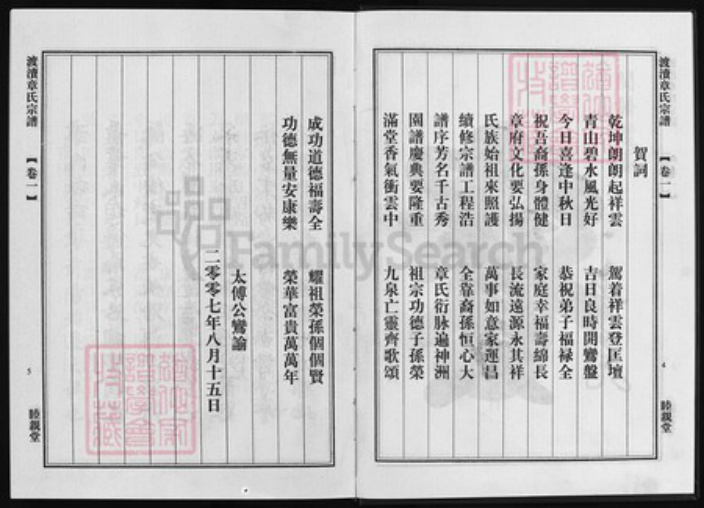 渡瀆章氏宗譜
【卷一】
4
睦親堂
賀詞
乾坤朗朗起祥雲 駕着祥雲登匡壇
青山碧水風光好 吉日良時開鸞盤
今日喜逢中秋日 恭祝弟子福禄全
祝吾裔孫身體健 家庭幸福壽綿長
章府文化要弘揚 長流遠源永其祥
氏族始祖來照護 萬事如意家運昌
續修宗譜工程浩 全靠裔孫恒心大
譜序芳名千古秀 章氏衍脉遍神洲
園譜慶典要隆重 祖宗功德子孫榮
滿堂香氣衝雲中 九泉亡靈齊歌頌
成功道德福壽全 耀祖榮孫個個賢
功德無量安康樂 榮華富貴萬萬年
太傅公鸞諭
二零零七年八月十五日
渡瀆章氏宗譜
【卷一】
5
睦親堂
FamilySearch